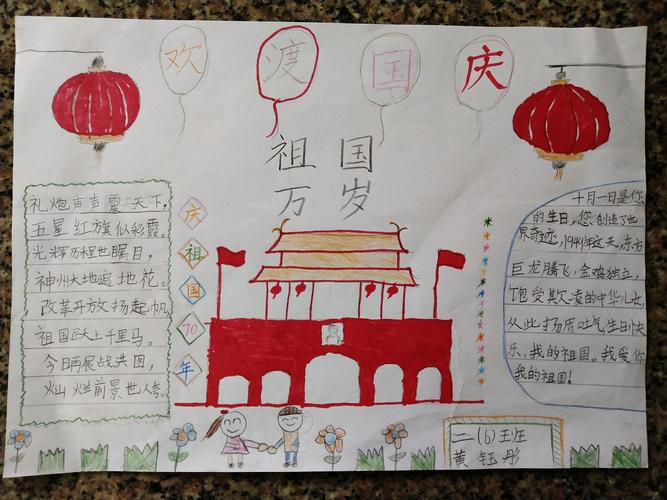 欢渡国庆
祖国
万岁
礼炮声声震天下,
五星红旗似彩霞。
光辉历程世瞩目,
神州大地遍地花。
改革开放扬起帆,
祖国跃上千里马。
今日再展战洪图,
灿烂前景世人夸。
庆
祖
国
70
年
十月一日是您
的生日,您创造了世
界奇迹,1949年这天,东方
巨龙腾飞,金鸡独立,
饱受欺凌的中华儿女,
从此扬眉吐气生日快
乐,我的祖国。我爱你
我的祖国!
二(6)班
黄钰彤